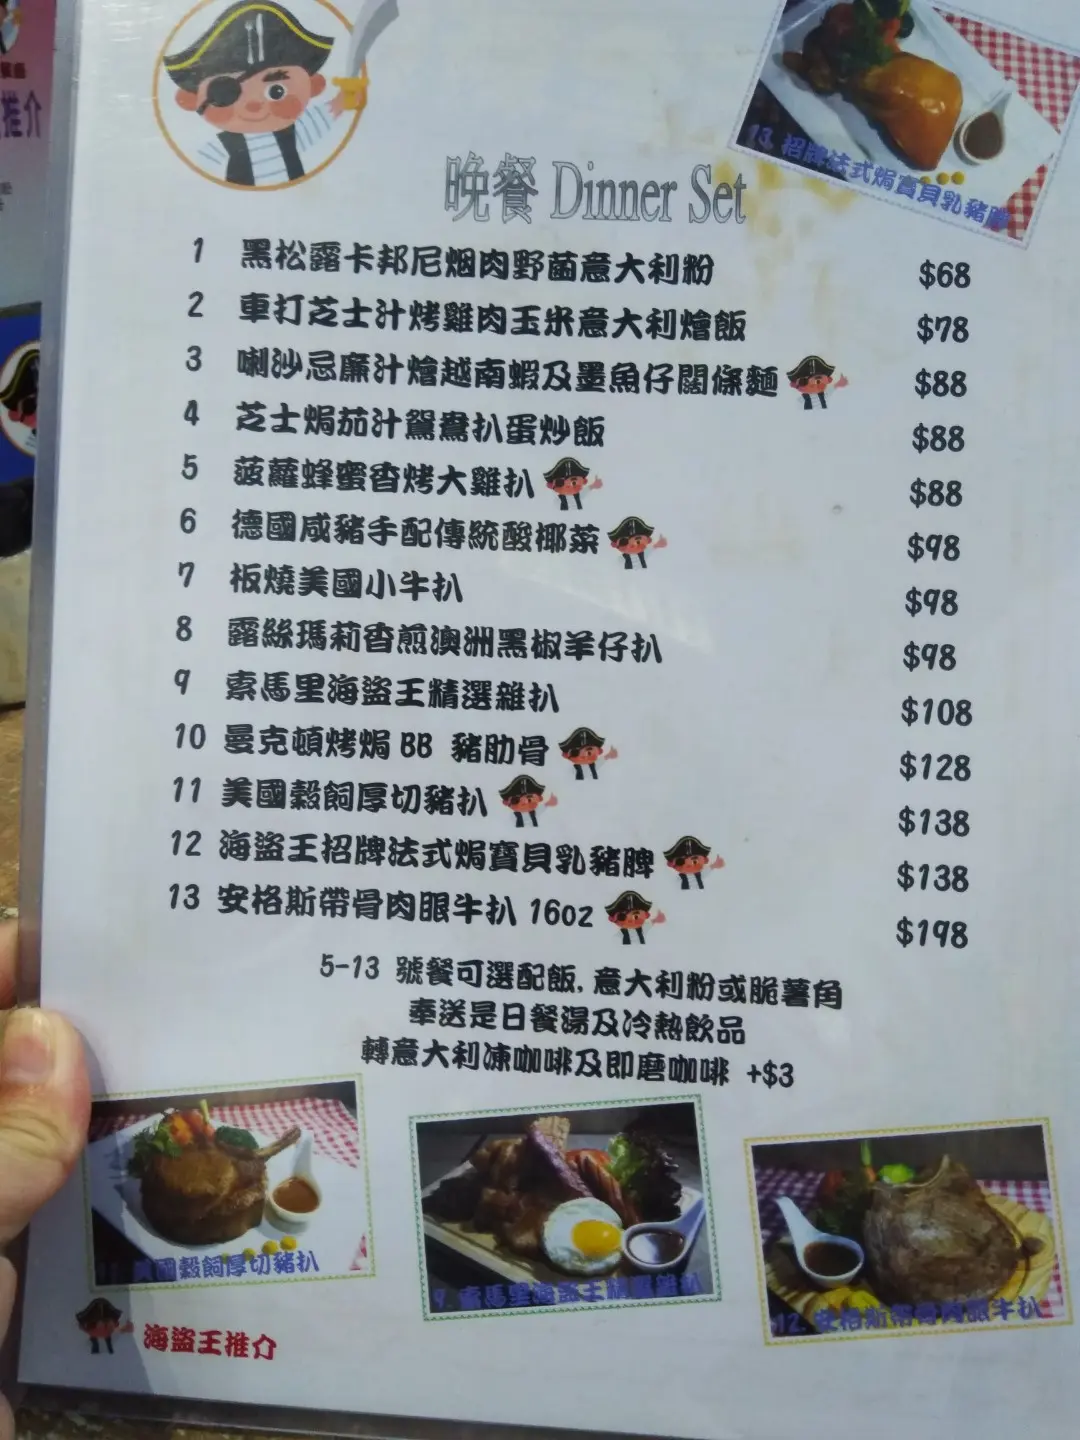 推介
13. 招牌法式焗寶貝乳豬脾
晚餐 Dinner Set
1 黑松露卡邦尼烟肉野菌意大利粉 $68
2 車打芝士汁烤雞肉玉米意大利燴飯 $78
3 喇沙忌廉汁燴越南蝦及墨魚仔闊條麵 $88
4 芝士焗茄汁鴛鴦扒蛋炒飯 $88
5 菠蘿蜂蜜香烤大雞扒 $88
6 德國咸豬手配傳統酸椰菜 $98
7 板燒美國小牛扒 $98
8 露絲瑪莉香煎澳洲黑椒羊仔扒 $98
9 索馬里海盜王精選雜扒 $108
10 曼克頓烤焗 BB 豬肋骨 $128
11 美國穀飼厚切豬扒 $138
12 海盜王招牌法式焗寶貝乳豬脾 $138
13 安格斯帶骨肉眼牛扒 16oz $198
5-13 號餐可選配飯, 意大利粉或脆薯角
奉送是日餐湯及冷熱飲品
轉意大利凍咖啡及即磨咖啡 +$3
美國穀飼厚切豬扒
9. 索馬里海盜王精選雜扒
12. 安格斯帶骨肉眼牛扒
海盜王推介